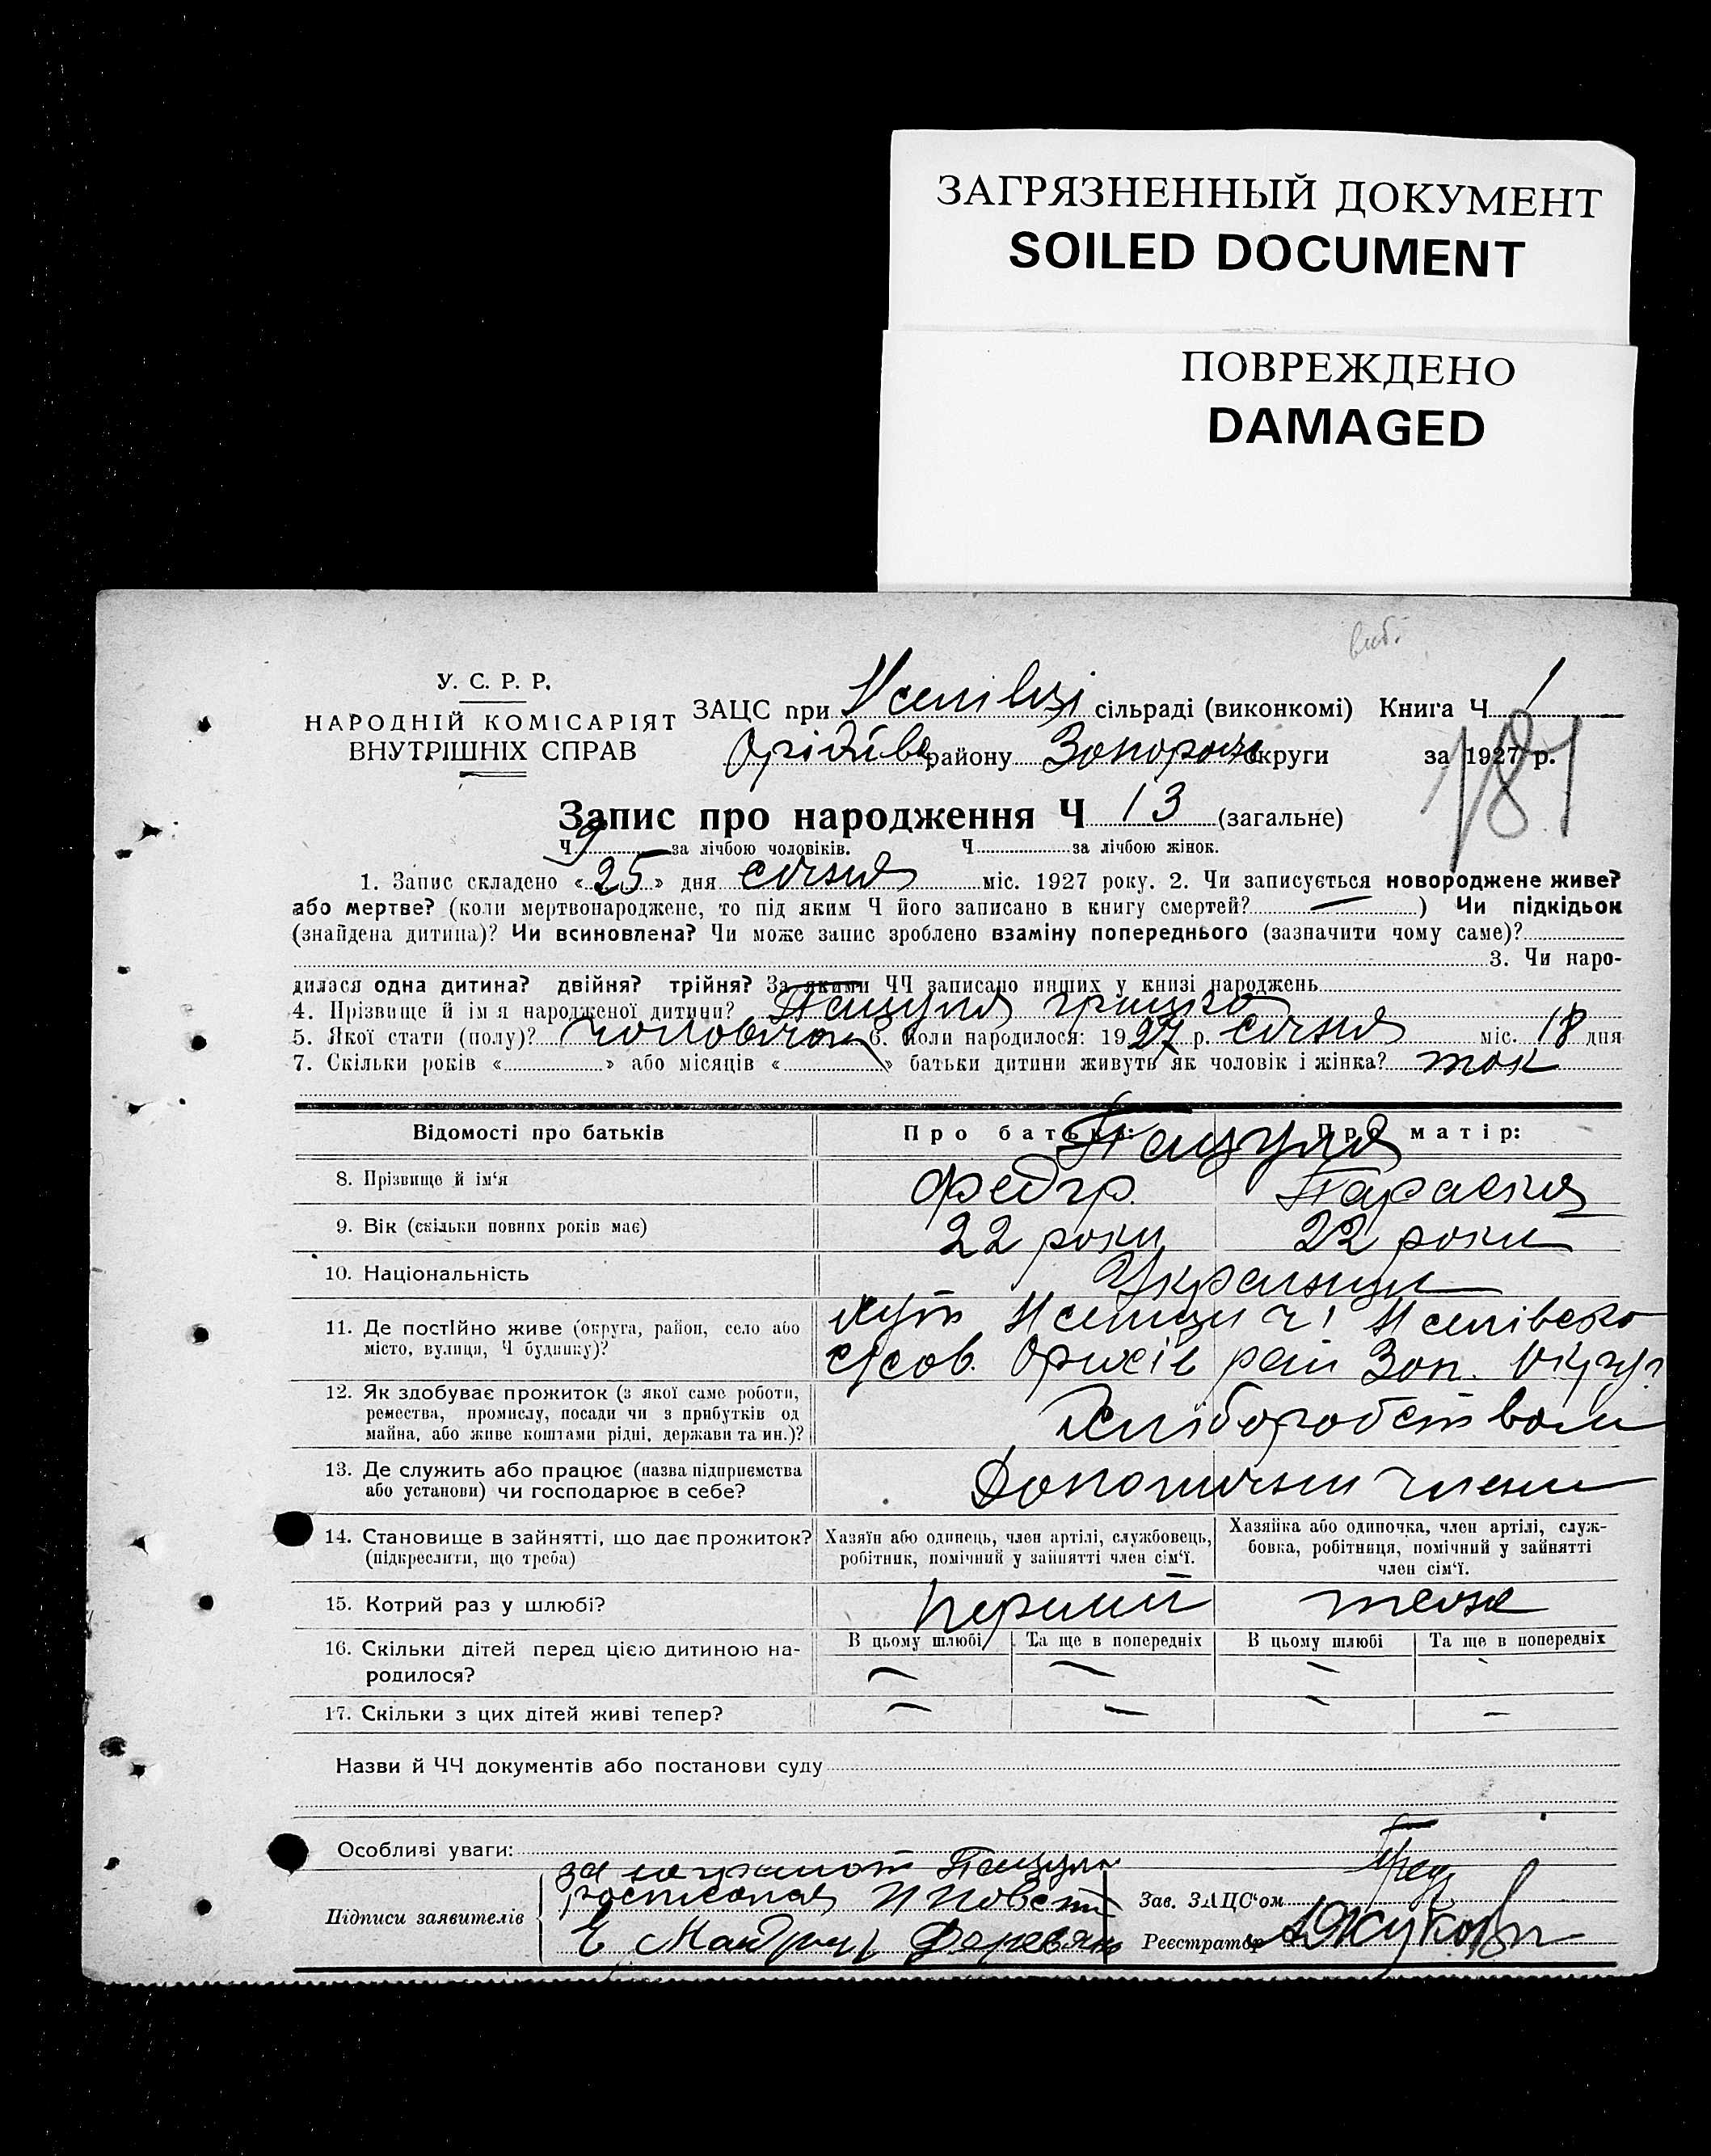 ЗАГРЯЗНЕННЫЙ ДОКУМЕНТ
SOILED DOCUMENT
ПОВРЕЖДЕНО
DAMAGED
У. С. Р. Р.
НАРОДНІЙ КОМІСАРІЯТ
ВНУТРІШНІХ СПРАВ
ЗАЦС при сільраді (виконкомі) Книга Ч 1
району Запорож округи за 1927 р.
181
Запис про народження Ч 13 (загальне)
Ч 9 за лічбою чоловіків. Ч за лічбою жінок.
1. Запис складено « 25 » дня січня міс. 1927 року. 2. Чи записується новороджене живе?
або мертве? (коли мертвонароджене, то під яким Ч його записано в книгу смертей? — ) Чи підкідьок
(знайдена дитина)? Чи всиновлена? Чи може запис зроблено взаміну попереднього (зазначити чому саме)?
3. Чи наро-
дилася одна дитина? двійня? трійня? За якими ЧЧ записано инших у книзі народжень
4. Прізвище й ім'я народженої дитини? Пацуля Грицько
5. Якої стати (полу)? чоловічої 6. Коли народилося: 1927 р. січня міс. 18 дня
7. Скільки років « » або місяців « » батьки дитини живуть як чоловік і жінка? так
Відомості про батьків Про батька: Про матір:
Пацуля
8. Прізвище й ім'я Федір Параска
9. Вік (скільки повних років має) 22 роки 22 роки
10. Національність Українци
11. Де постійно живе (округа, район, село або
місто, вулиця, Ч будинку)?
с/сов. Оріхів рай Зап. Округи
12. Як здобуває прожиток (з якої саме роботи,
ремества, промислу, посади чи з прибутків од
майна, або живе коштами рідні, держави та ин.)?
Хліборобством
13. Де служить або працює (назва підприємства
або установи) чи господарює в себе?
Допомічни члени
14. Становище в зайнятті, що дає прожиток?
(підкреслити, що треба)
Хазяїн або одинець, член артілі, службовець,
робітник, помічний у зайнятті член сім'ї.
Хазяйка або одиночка, член артілі, служ-
бовка, робітниця, помічний у зайнятті
член сім'ї.
15. Котрий раз у шлюбі? перший теж
16. Скільки дітей перед цією дитиною на-
родилося?
В цьому шлюбі Та ще в попередніх В цьому шлюбі Та ще в попередніх
— — — -
17. Скільки з цих дітей живі тепер? — — — —
Назви й ЧЧ документів або постанови суду
Особливі уваги:
за неграмот Пацуля
Підписи заявителів
Зав. ЗАЦС'ом
Реєстратор